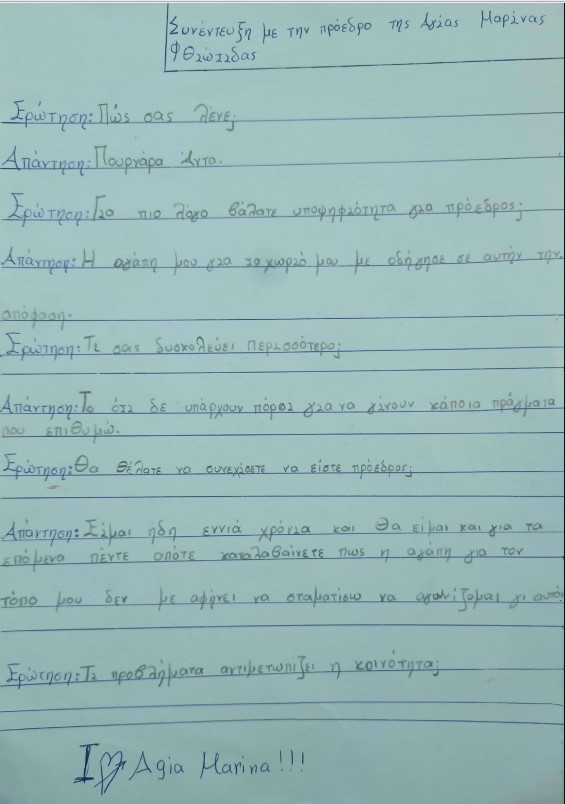 Συνέντευξη με την πρόεδρο της Αγίας Μαρίνας
Φθιώτιδας
Ερώτηση: Πώς σας λένε;
Απάντηση: Πουρνάρα Άντα.
Ερώτηση: Για πιο λόγο βάλατε υποψηφιότητα για πρόεδρος;
Απάντηση: Η αγάπη μου για το χωριό μου με οδήγησε σε αυτήν την
απόφαση.
Ερώτηση: Τι σας δυσκολεύει περισσότερο;
Απάντηση: Το ότι δε υπάρχουν πόροι για να γίνουν κάποια πράγματα
που επιθυμώ.
Ερώτηση: Θα θέλατε να συνεχίσετε να είστε πρόεδρος;
Απάντηση: Είμαι ήδη εννιά χρόνια και θα είμαι και για τα
επόμενα πέντε οπότε καταλαβαίνετε πως η αγάπη για τον
τόπο μου δεν με αφήνει να σταματίσω να αγωνίζομαι γι αυτό.
Ερώτηση: Τι προβλήματα αντιμετωπίζει η κοινότητα;
I ♡ Agia Marina!!!